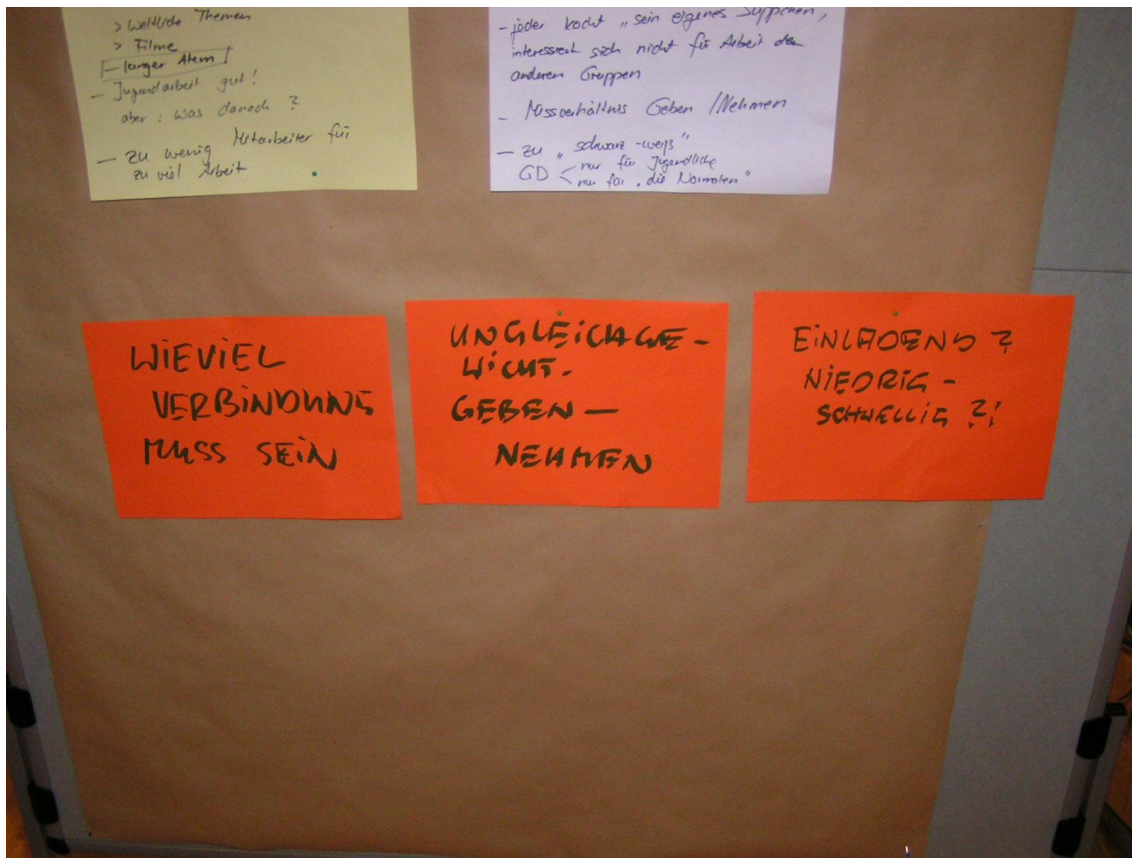 > weltliche Themen
> Filme
- langer Atem
- Jugendarbeit gut!
aber: was danach?
- zu wenig Mitarbeiter für
zu viel Arbeit
- jeder kocht „sein eigenes Süppchen",
interessiert sich nicht für Arbeit der
anderen Gruppen
- Missverhältnis Geben / Nehmen
- zu „schwarz-weiß"
GD < nur für Jugendliche
nur für „die Normalen"
WIEVIEL
VERBINDUNG
MUSS SEIN
UNGLEICHGE-
WICHT.
GEBEN -
NEHMEN
EINLADEND?
NIEDRIG -
SCHWELLIG?!